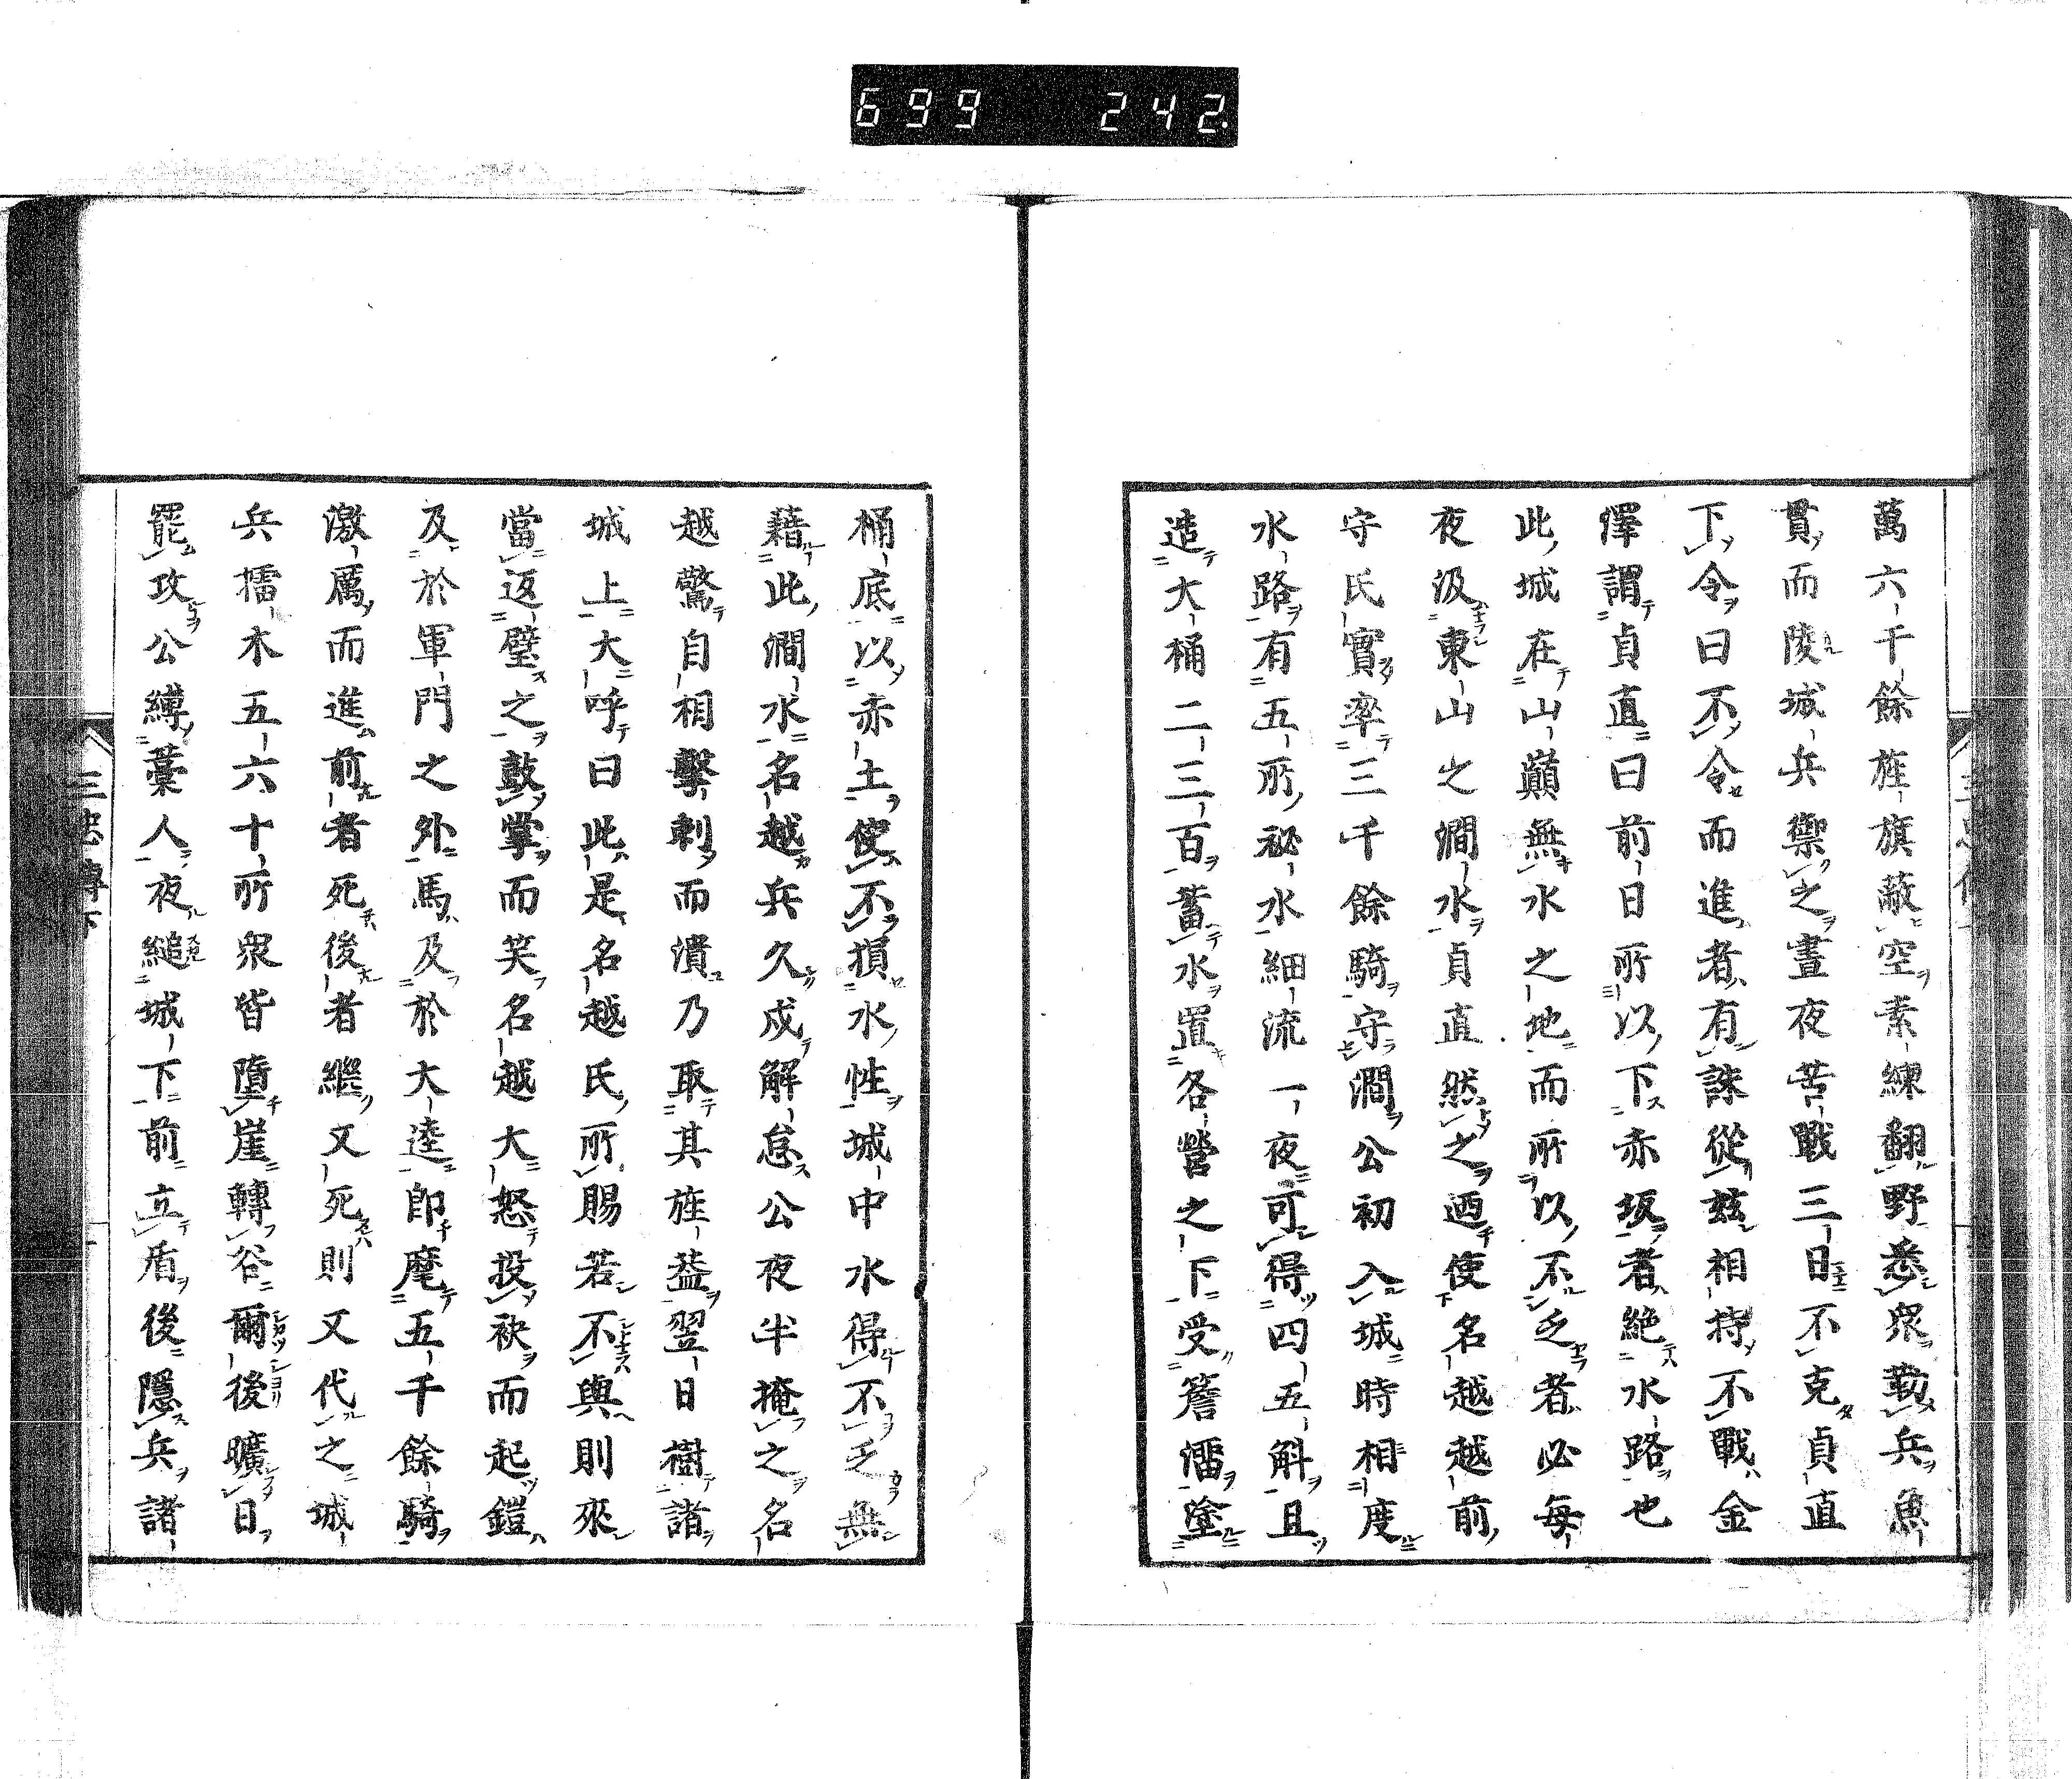 699 242.
萬六千餘旌旗蔽空素練翻野悉衆勒兵魚
貫而陵城兵禦之晝夜苦戰三日不克貞直
下令曰不令而進者有誅從茲相持不戰金
澤謂貞直曰前日所以下赤坂者絶水路也
此城在山巓無水之地而所以不乏者必毎
夜汲東山之澗水貞直然之迺使名越越前
守氏實率三千餘騎守澗公初入城時相度
水路有五所祕水細流一夜可得四五斛且
造大桶二三百蓄水置各營之下受簷溜塗
桶底以赤土使不損水性城中水得不乏無
藉此澗水名越兵久戍解怠公夜半掩之名
越驚自相擊刺而潰乃取其旌葢翌日樹諸
城上大呼曰此是名越氏所賜若不輿則來
當返璧之鼓掌而笑名越大怒投袂而起鎧
及於軍門之外馬及於大逵卽麾五千餘騎
激厲而進前者死後者繼又死則又代之城
兵擂木五六十所衆皆墮崖轉谷爾後曠日
罷攻公縛藁人夜縋城下前立盾後隱兵諸
三忠傳下